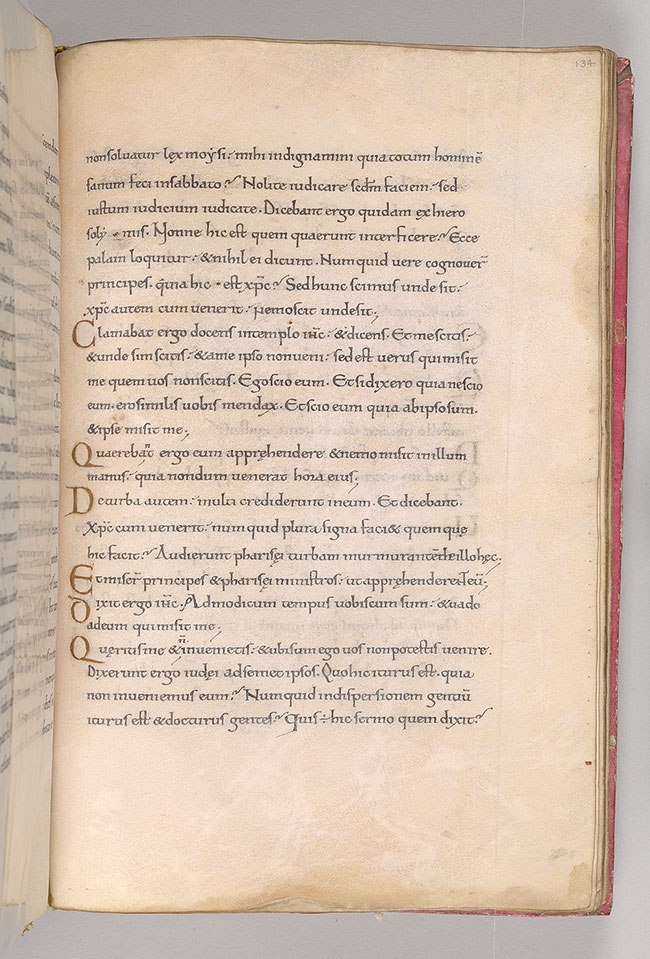 134
nonsoluatur lex moysi· mihi indignamini quia totum hominē
sanum feci insabbato? Nolite iudicare scdm faciem· sed
iustum iudicium iudicate· Dicebant ergo quidam exhiero
soly mis· Nonne hic est quem quaerunt interficere? Ecce
palam loquitur· &nihil ei dicunt· Numquid vere cognouer̄
principes· quia hic · est xp̄c? Sedhunc scimus undesit·
xp̄c autem cum uenerit· nemoscit undesit;
Clamabat ergo docens intemplo ih̄c· &dicens· Etmescitis·
&unde simscitis· &ame ipso nonueni· sed est uerus quimisit
me quem uos nonscitis· Egoscio eum· Etsidixero quia nescio
eum· erosimilis uobis mendax· Etscio eum quia abipsosum·
&ipse misit me;
Quaerebant̄ ergo eum appręhendere &nemo misit inillum
manus· quia nondum uenerat hora eius;
Deturba autem· multi crediderunt ineum· Et dicebant·
Xp̄c cum uenerit· numquid plura signa faci& quam quę
hic facit? Audierunt pharisęi turbam murmurantē deillo hęc·
Et miser̄ principes &pharisęi ministros· ut appręhenderent eū;
Dixit ergo ih̄c· Admodicum tempus uobiscum sum· &uado
adeum quimisit me;
Quęritis me &n̄inuenietis· &ubisum ego uos nonpotestis uenire·
Dixerunt ergo iudęi adsemet ipsos· Quohic iturus est· quia
non inueniemus eum? Numquid indispersionem gentiū
iturus est &docturus gentes? Quis ÷ hic sermo quem dixit?